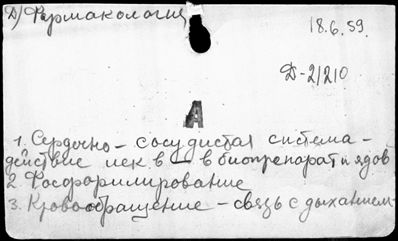 Д) Фармакология
18.6.59.
Д-2/210
А
1. Сердечно-сосудистая система -
действие лек. в - в биопрепарат и ядов
2. Фосфорилирование
3. Кровообращение - связь с дыханием